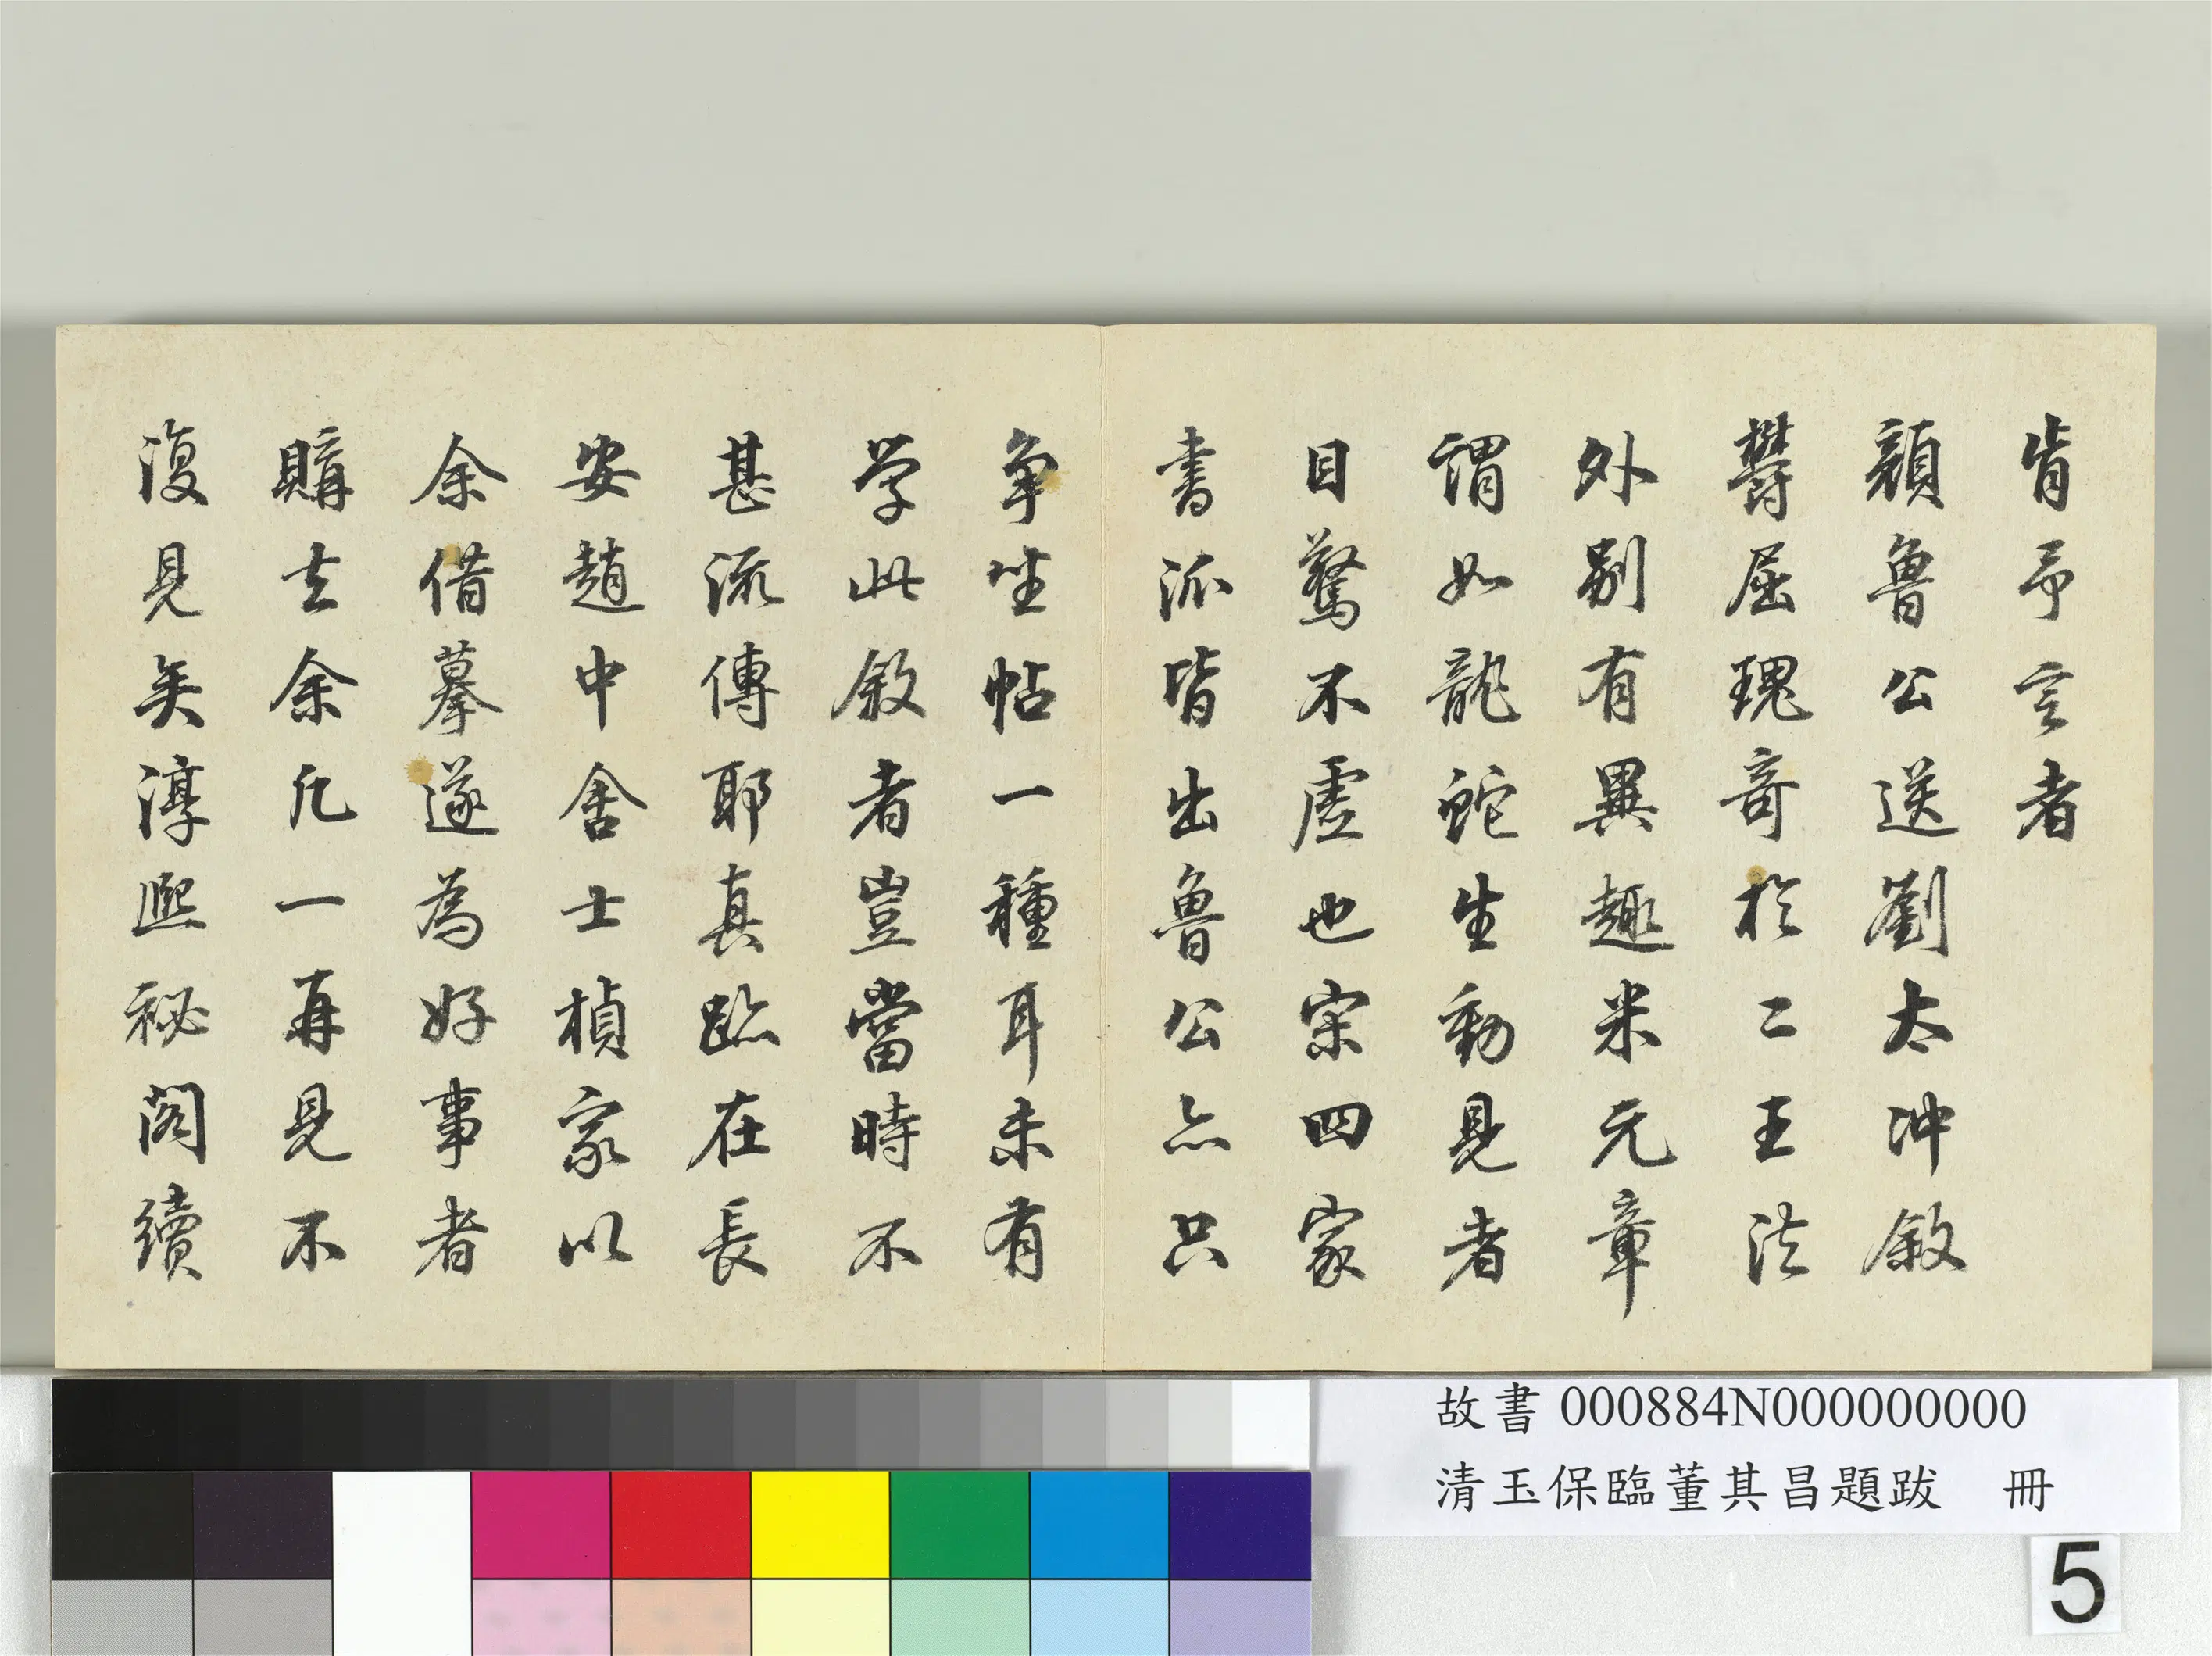 肯予言者
顏魯公送劉太冲敘
鬱屈瑰奇於二王法
外別有異趣米元章
謂如龍蛇生動見者
目驚不虛也宋四家
書派皆出魯公亦只
争坐帖一種耳未有
学此敘者豈當時不
甚流傳耶真跡在長
安趙中舍士楨家以
余借摹遂為好事者
購去余凡一再見不
復見矣淳熙秘閣續
故書 000884N000000000
清玉保臨董其昌題跋 冊
5